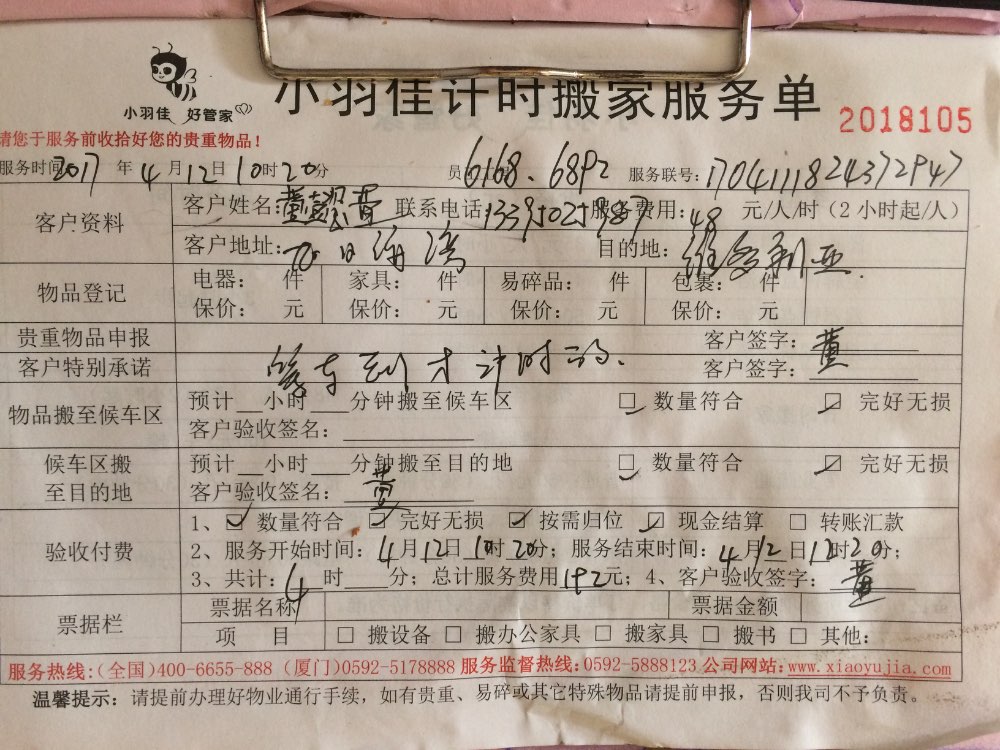 小羽佳 好管家
小羽佳计时搬家服务单
2018105
请您于服务前收拾好您的贵重物品！
服务时间 2017年4月12日10时20分 员 6168、6892 服务联号：170411182437 2947
客户资料 客户姓名：黄 联系电话 服务费用：48元/人/时（2小时起/人）
客户地址： 目的地：维多利亚
物品登记 电器： 件 家具： 件 易碎品： 件 包裹： 件
保价： 元 保价： 元 保价： 元 保价： 元
贵重物品申报 客户签字：黄
客户特别承诺 等车到才计时的. 客户签字：
物品搬至候车区 预计__小时___分钟搬至候车区 ☑ 数量符合 ☑ 完好无损
客户验收签名：
候车区搬至目的地 预计__小时___分钟搬至目的地 ☑ 数量符合 ☑ 完好无损
客户验收签名：黄
验收付费 1、☑ 数量符合 ☑ 完好无损 ☑ 按需归位 ☑ 现金结算 □ 转账汇款
2、服务开始时间：4月12日10时20分；服务结束时间：4月12日12时20分；
3、共计：4时___分；总计服务费用192元；4、客户验收签字：黄
票据栏 票据名称 票据金额
项 目 □ 搬设备 □ 搬办公家具 □ 搬家具 □ 搬书 □ 其他：
服务热线:(全国)400-6655-888 (厦门)0592-5178888 服务监督热线:0592-5888123 公司网站:www.xiaoyujia.com
温馨提示：请提前办理好物业通行手续，如有贵重、易碎或其它特殊物品请提前申报，否则我司不予负责。